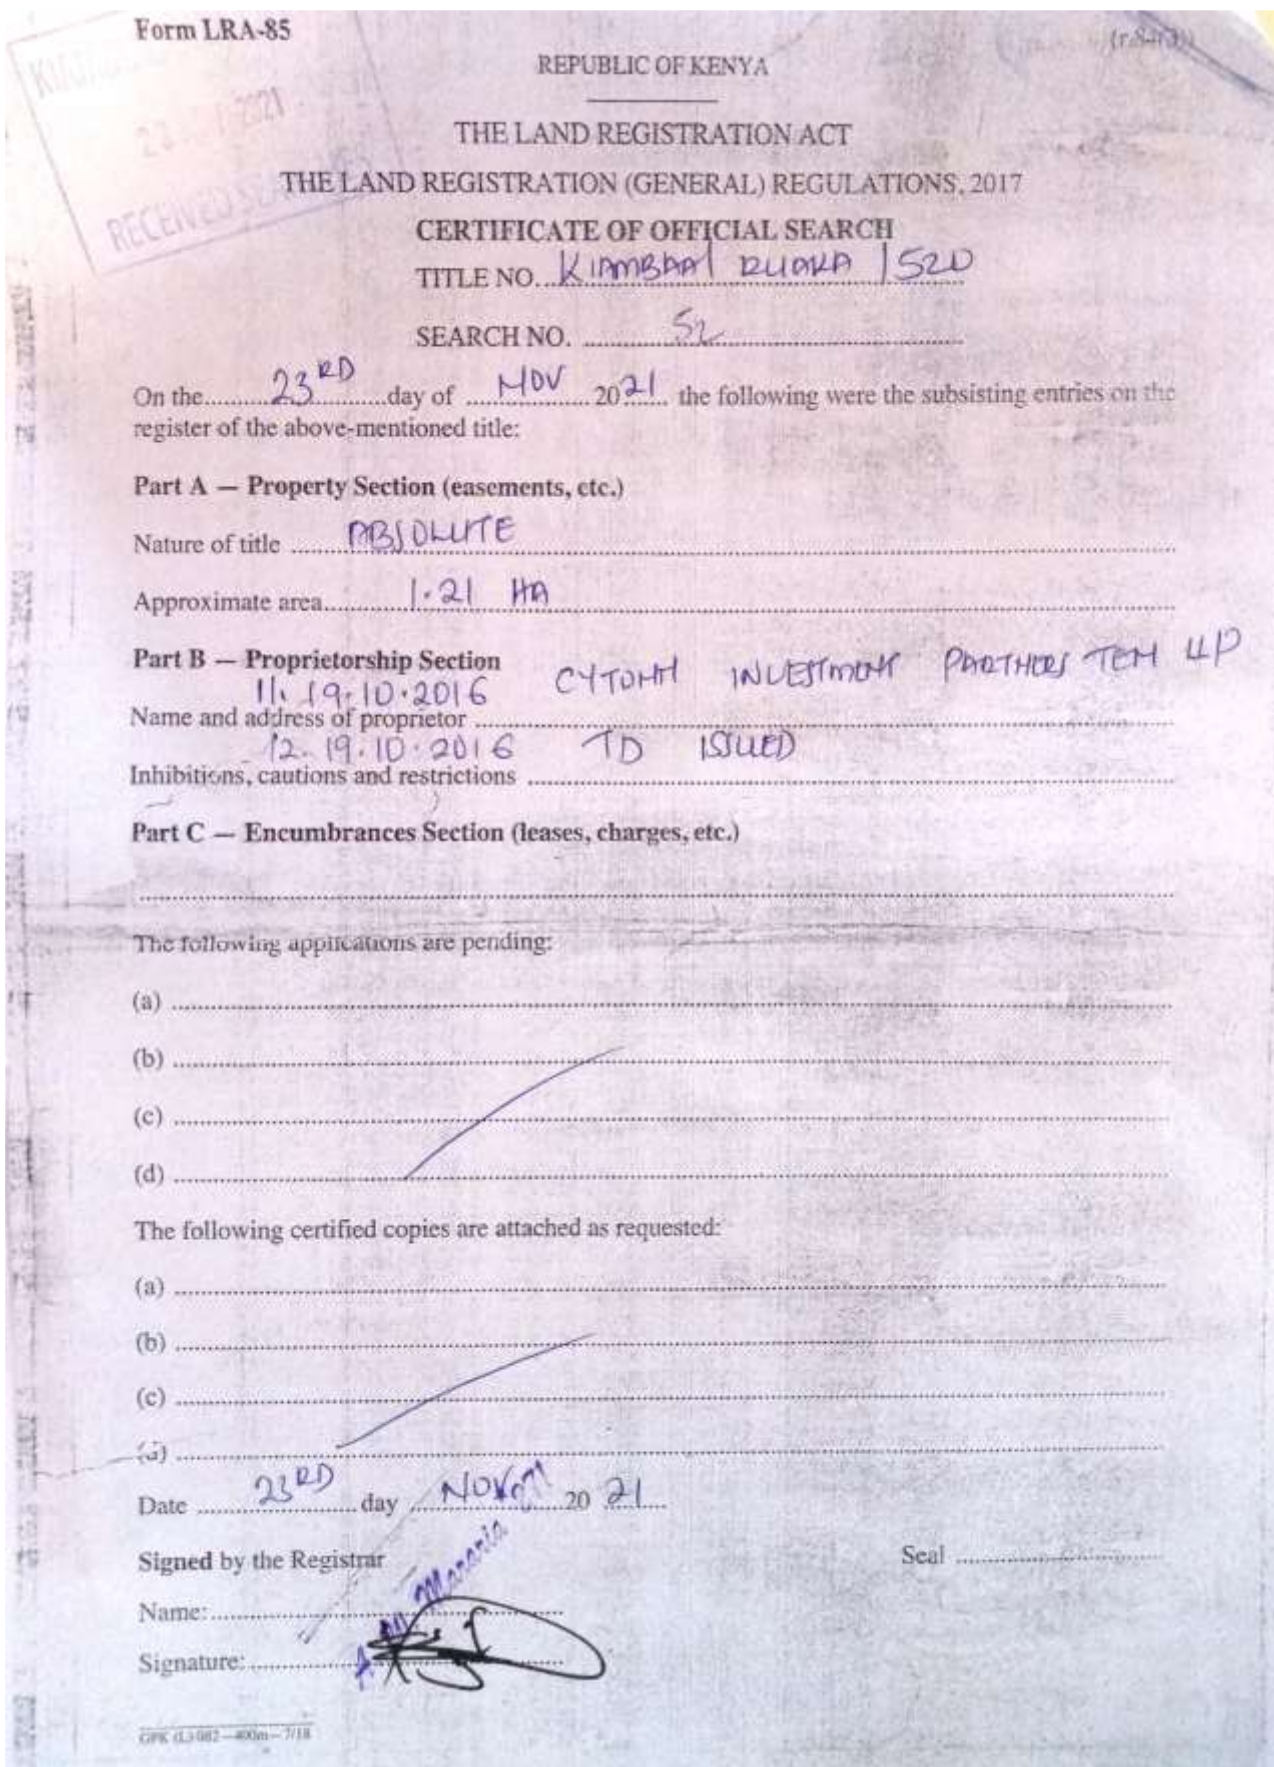 Form LRA-85
(r.84(3))
REPUBLIC OF KENYA
THE LAND REGISTRATION ACT
THE LAND REGISTRATION (GENERAL) REGULATIONS, 2017
2021
RECEIVED
CERTIFICATE OF OFFICIAL SEARCH
TITLE NO. KIAMBAA/ RUAKA /520
SEARCH NO. 52
On the 23RD day of NOV 2021 the following were the subsisting entries on the
register of the above-mentioned title:
Part A — Property Section (easements, etc.)
Nature of title ABSOLUTE
Approximate area 1.21 HA
Part B — Proprietorship Section
11. 19.10.2016 CYTONN INVESTMENT PARTNERS TEN LLP
Name and address of proprietor
12. 19.10.2016 TD ISSUED
Inhibitions, cautions and restrictions
Part C — Encumbrances Section (leases, charges, etc.)
The following applications are pending:
(a)
(b)
(c)
(d)
The following certified copies are attached as requested:
(a)
(b)
(c)
(d)
Date 23RD day NOV 20 21
Signed by the Registrar
Seal
Name:
Signature:
GPK (L) 082—400m—7/18